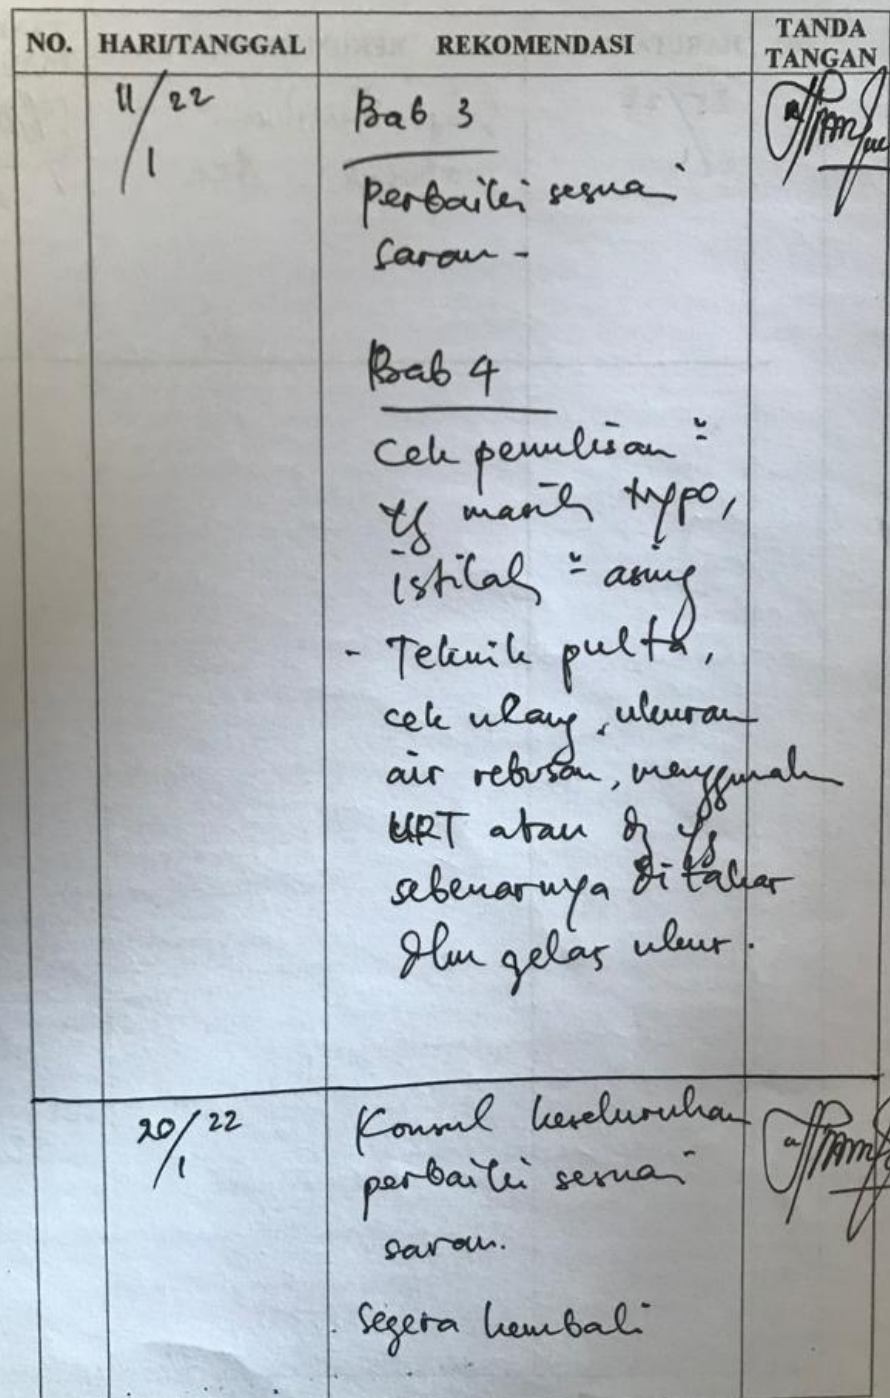 NO. HARI/TANGGAL REKOMENDASI TANDA TANGAN
11/1 22
Bab 3
Perbaiki sesuai
saran -
Bab 4
Cek penulisan"
yg masih typo,
istilah" asing
- Teknik pulta,
cek ulang, ukuran
air rebusan, menggunak
URT atau yg
sebenarnya di takar
dlm gelas ukur.
20/1 22
Konsul keseluruhan
perbaiki sesuai
saran.
Segera kembali